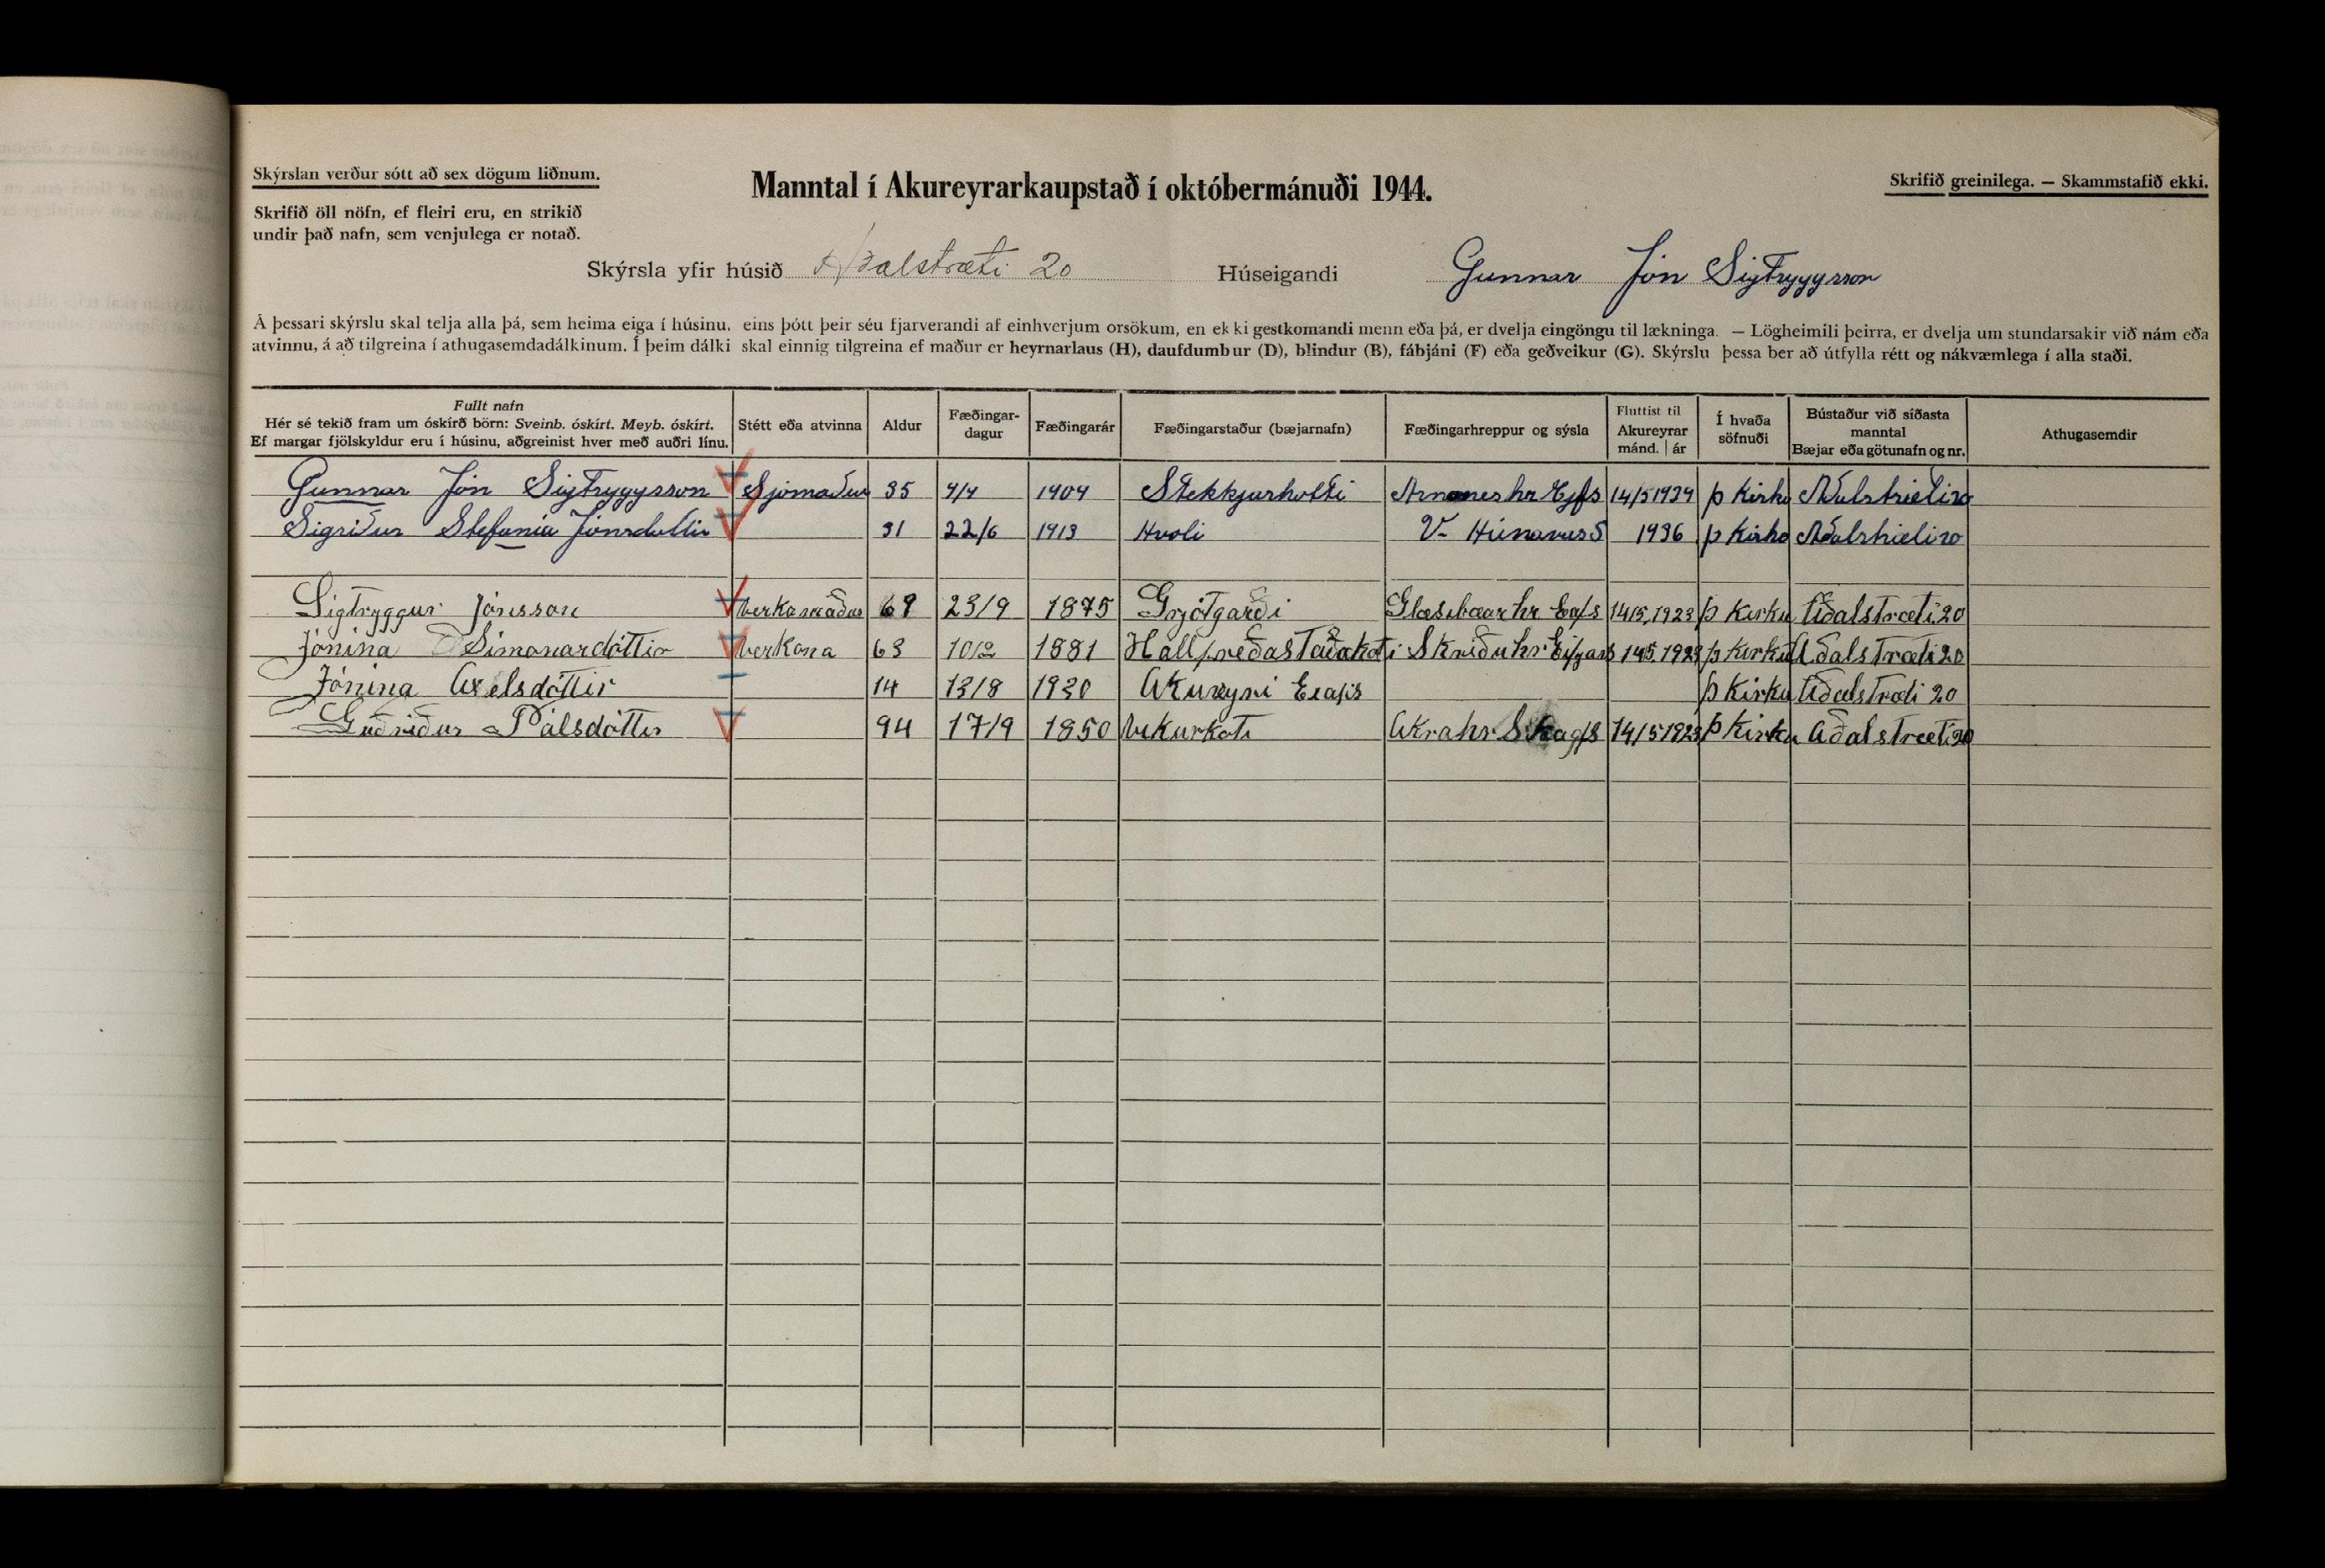 Skýrslan verður sótt að sex dögum liðnum.
Manntal í Akureyrarkaupstað í októbermánuði 1944.
Skrifið greinilega. — Skammstafið ekki.
Skrifið öll nöfn, ef fleiri eru, en strikið
undir það nafn, sem venjulega er notað.
Skýrsla yfir húsið Aðalstræti 20 Húseigandi Gunnar Jón Sigtryggsson
Á þessari skýrslu skal telja alla þá, sem heima eiga í húsinu, eins þótt þeir séu fjarverandi af einhverjum orsökum, en ekki gestkomandi menn eða þá, er dvelja eingöngu til lækninga. — Lögheimili þeirra, er dvelja um stundarsakir við nám eða
atvinnu, á að tilgreina í athugasemdadálkinum. Í þeim dálki skal einnig tilgreina ef maður er heyrnarlaus (H), daufdumbur (D), blindur (B), fábjáni (F) eða geðveikur (G). Skýrslu þessa ber að útfylla rétt og nákvæmlega í alla staði.
Fullt nafn
Hér sé tekið fram um óskírð börn: Sveinb. óskírt. Meyb. óskírt.
Ef margar fjölskyldur eru í húsinu, aðgreinist hver með auðri línu.
Stétt eða atvinna
Aldur
Fæðingar-
dagur
Fæðingarár
Fæðingarstaður (bæjarnafn)
Fæðingarhreppur og sýsla
Fluttist til
Akureyrar
mánd. | ár
Í hvaða
söfnuði
Bústaður við síðasta
manntal
Bæjar eða götunafn og nr.
Athugasemdir
Gunnar Jón Sigtryggsson Sjómaður 35 4/4 1909 Stekkjarholti Arnaneshr Eyfs 14/5 1929 þ kirkju Aðalstræti 20
Sigríður Stefanía Jónsdóttir 31 22/6 1913 Hvoli V- Húnavs 1936 þ kirkju Aðalstræti 20
Sigtryggur Jónsson verkamaður 69 23/9 1875 Grjótgarði Glæsibæarhr Eafs 14/5 1923 þ Kirkju Aðalstræti 20
Jónína Símonardóttir verkona 63 10/2 1881 Hallfreðastaðakoti Skriðuhr 14/5 1923 þ kirkju Aðalstræti 20
Jónína Axelsdóttir 14 13/8 1930 Akureyri Eeafis þ Kirkju Aðalstræti 20
Guðríður Pálsdóttir 94 17/9 1850 Ukurkoti Akrahr Skagfs 14/5 1923 þ Kirkju Aðalstræti 20